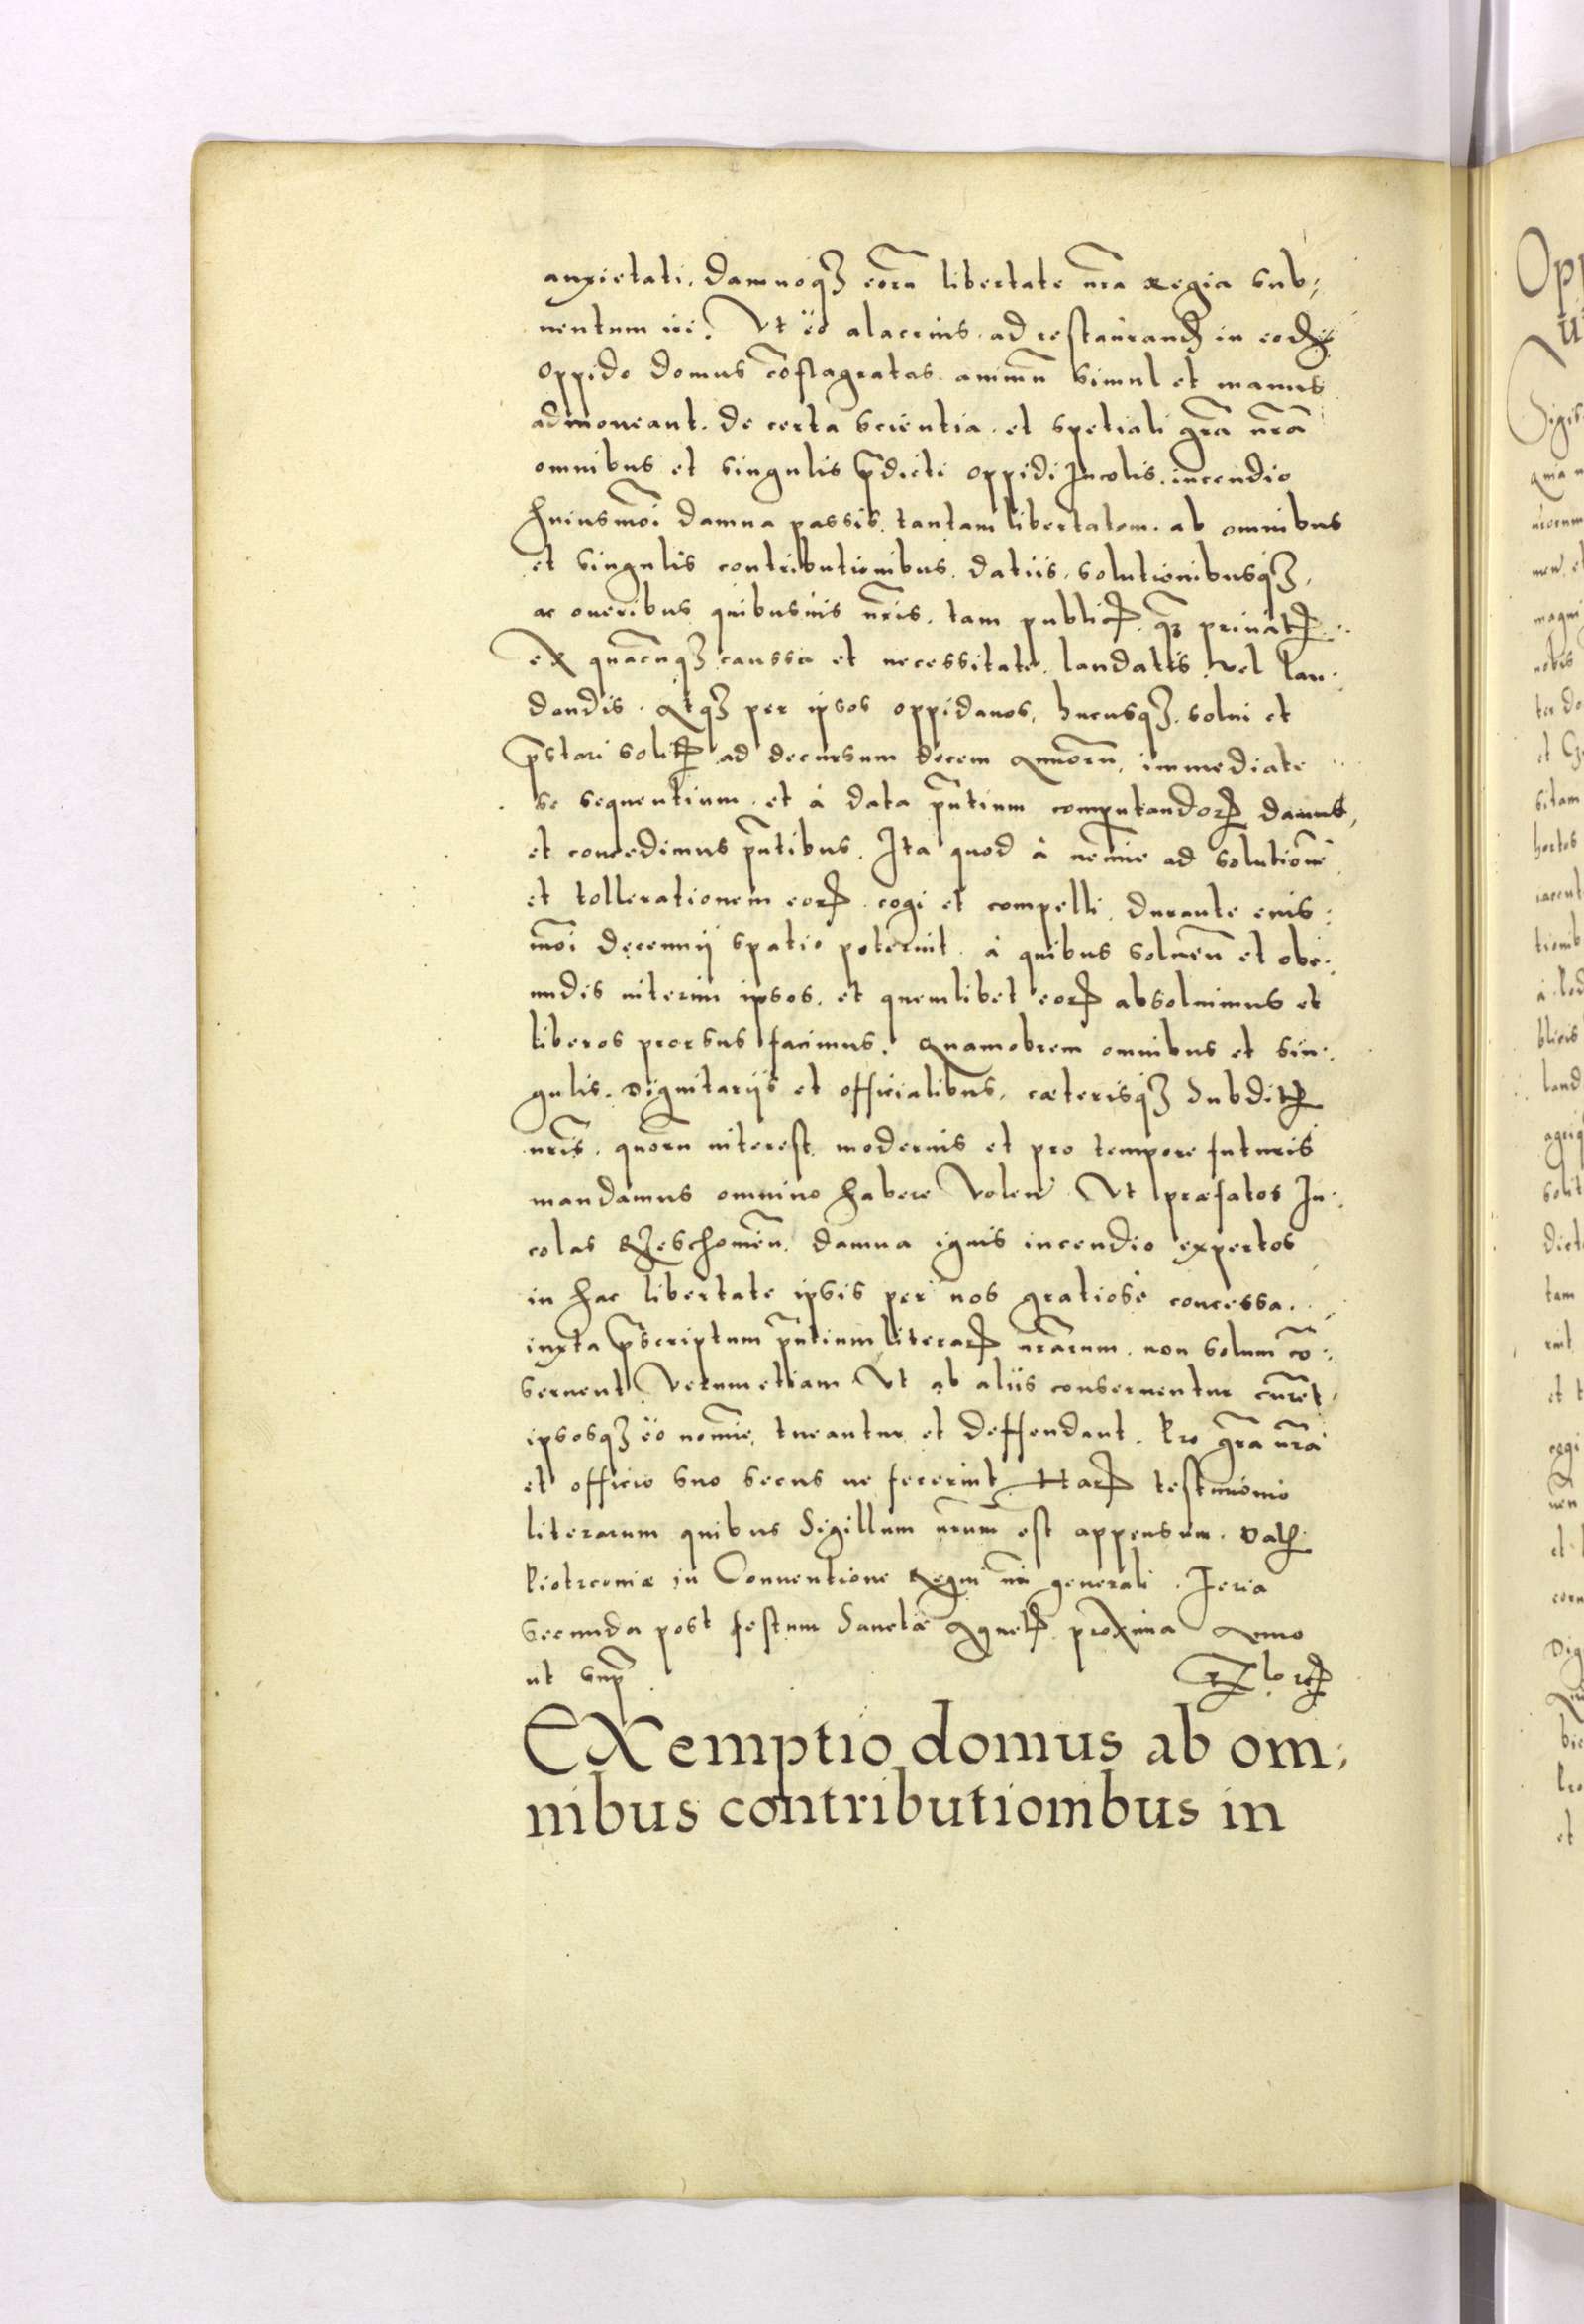 anxietati, damnoqȝ eorū libertate nr̄a Regia sub⸗
uentum iri. Vt eo alacrius ad restaurand in eodē
oppido domus cōflagratas animū simul et manus
admoueant. de certa scientia et spetiali gr̄a nr̄a
omnibus et singulis p̄dicti oppidi Incolis, incendio
huiusmōi damna passis, tantam libertatem ab omnibus
et singulis contributionibus, datiis, solutionibusqȝ,
ac oneribus quibusuis nr̄is, tam publicꝭ qȝ priuatꝭ
ex quacūqȝ caussa et necessitate laudatis vel lau⸗
dandis. Atqȝ per ipsos oppidanos, hucusqȝ solui et
p̄stari solitꝭ ad decursum decem Annorū, immediate
se sequentium et à data p̄ntium computandorꝝ damus,
et concedimus p̄ntibus. Ita quod à nemīe ad solutionē
et tollerationem eorꝝ cogi et compelli durante eius⸗
mōi decennij spatio poterint. à quibus soluen̄ et obe⸗
undis interim ipsos, et quemlibet eorꝝ absoluimus et
liberos prorsus facimus. Quamobrem omnibus et sin⸗
gulis Dignitarijs et officialibus, cæterisqȝ Subditꝭ
nr̄is, quorū interest modernis et pro tempore futuris
mandamus omnino habere volen. Vt præfatos In⸗
colas Rzeschouien̄ damna ignis incendio expertos
in hac libertate ipsis per nos gratiosè concessa
iuxta p̄scriptum p̄ntium literarꝝ nr̄arum non solum cō⸗
seruent Verumetiam Vt ab aliis conseruentur curēt
ipsosqȝ eo nomīe, tueantur et deffendant. Pro gr̄a nr̄a
et officio suo secus ne fecerint. Harꝝ testimonio
literarum quibus Sigillum nr̄um est appensum. Datꝭ
Piotrcouiæ in Conuentione Regni nr̄i generali. Feria
secunda post festum Sanctæ Agnetꝭ proxima Anno
ut sup̄
EXemptio domus ab om⸗
nibus contributionibus in